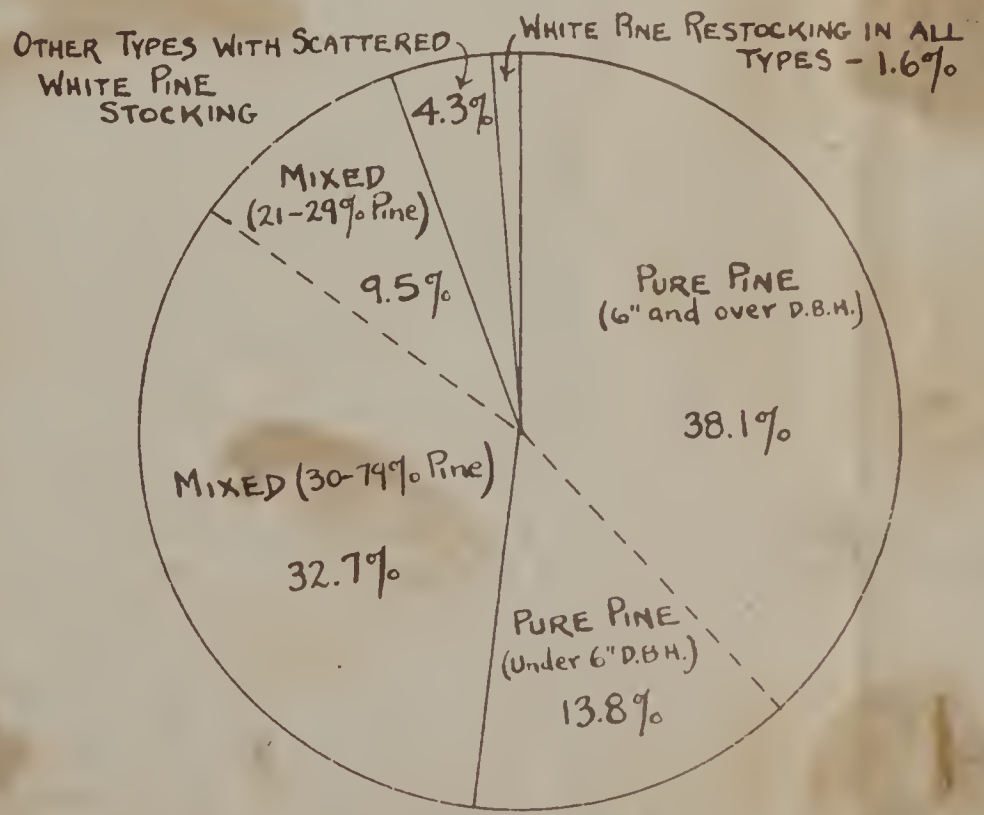 OTHER TYPES WITH SCATTERED
WHITE PINE
STOCKING
4.3%
WHITE PINE RESTOCKING IN ALL
TYPES - 1.6%
MIXED
(21-29% Pine)
9.5%
PURE PINE
(6" and over D.B.H.)
38.1%
MIXED (30-79% Pine)
32.7%
PURE PINE
(Under 6" D.B.H.)
13.8%